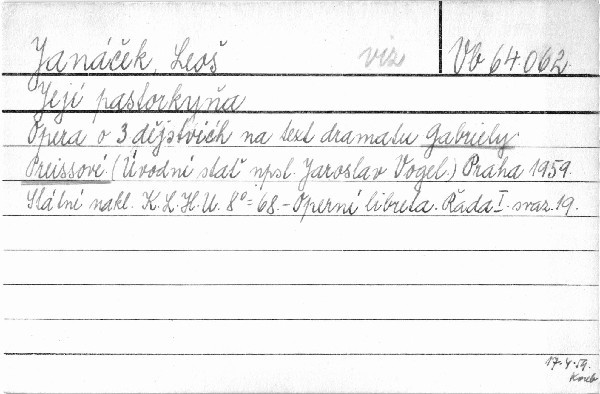 Janáček, Leoš viz Vb 64.062
Její pastorkyňa
Opera o 3 dějstvích na text dramatu Gabriely
Preissové. (Úvodní stať npsl. Jaroslav Vogel.) Praha 1959.
Státní nakl. K.L.H.U. 8° - 68. - Operní libreta. Řada I. svaz. 19.
17.4.59.